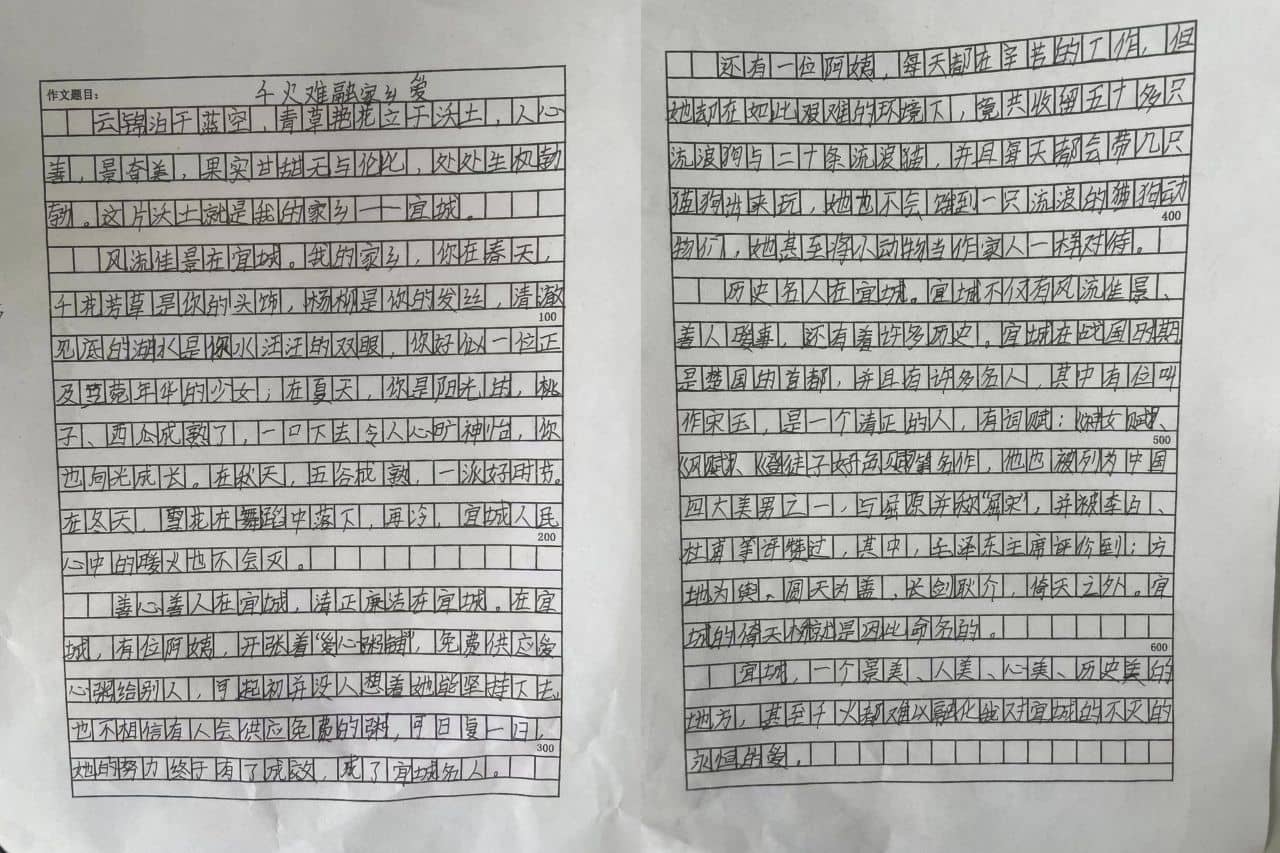 作文题目：千火难融家乡爱
云锦泊于蓝空，青草艳花立于沃土，人心
善，景奇美，果实甘甜无与伦比，处处生机勃
勃。这片沃土就是我的家乡——宜城。
风流佳景在宜城。我的家乡，你在春天，
千花芳草是你的头饰，杨柳是你的发丝，清澈
100
见底的湖水是你水汪汪的双眼，你好似一位正
及豆蔻年华的少女；在夏天，你是阳光的，桃
子、西瓜成熟了，一口下去令人心旷神怡，你
也向光成长。在秋天，五谷成熟，一派好时节。
在冬天，雪花在舞蹈中落下，再冷，宜城人民
200
心中的暖火也不会灭。
善心善人在宜城，清正廉洁在宜城。在宜
城，有位阿姨，开张着“爱心粥铺”，免费供应爱
心粥给别人，可起初并没人想着她能坚持下去，
也不相信有人会供应免费的粥，可日复一日，
300
她的努力终于有了成效，成了宜城名人。
还有一位阿姨，每天都在辛苦的工作，但
她却在如此艰难的环境下，竟共收留五十多只
流浪狗与二十条流浪猫，并且每天都会带几只
猫狗进来玩，她也不会饿到一只流浪的猫狗动
400
物们，她甚至将小动物当作家人一样对待。
历史名人在宜城。宜城不仅有风流佳景、
善人暖事，还有着许多历史。宜城在战国时期
是楚国的首都，并且有许多名人，其中有位叫
作宋玉，是一个清正的人，有词赋：《神女赋》、
500
《风赋》、《登徒子好色赋》等名作，他也被列为中国
四大美男之一，与屈原并称“屈宋”，并被李白、
杜甫等评赞过，其中，毛泽东主席评价到：方
地为舆、圆天为盖，长剑耿介，倚天之外。宜
城的倚天楼就是因此命名的。
600
宜城，一个景美、人美、心美、历史美的
地方，甚至千火都难以融化我对宜城的不灭的
永恒的爱。